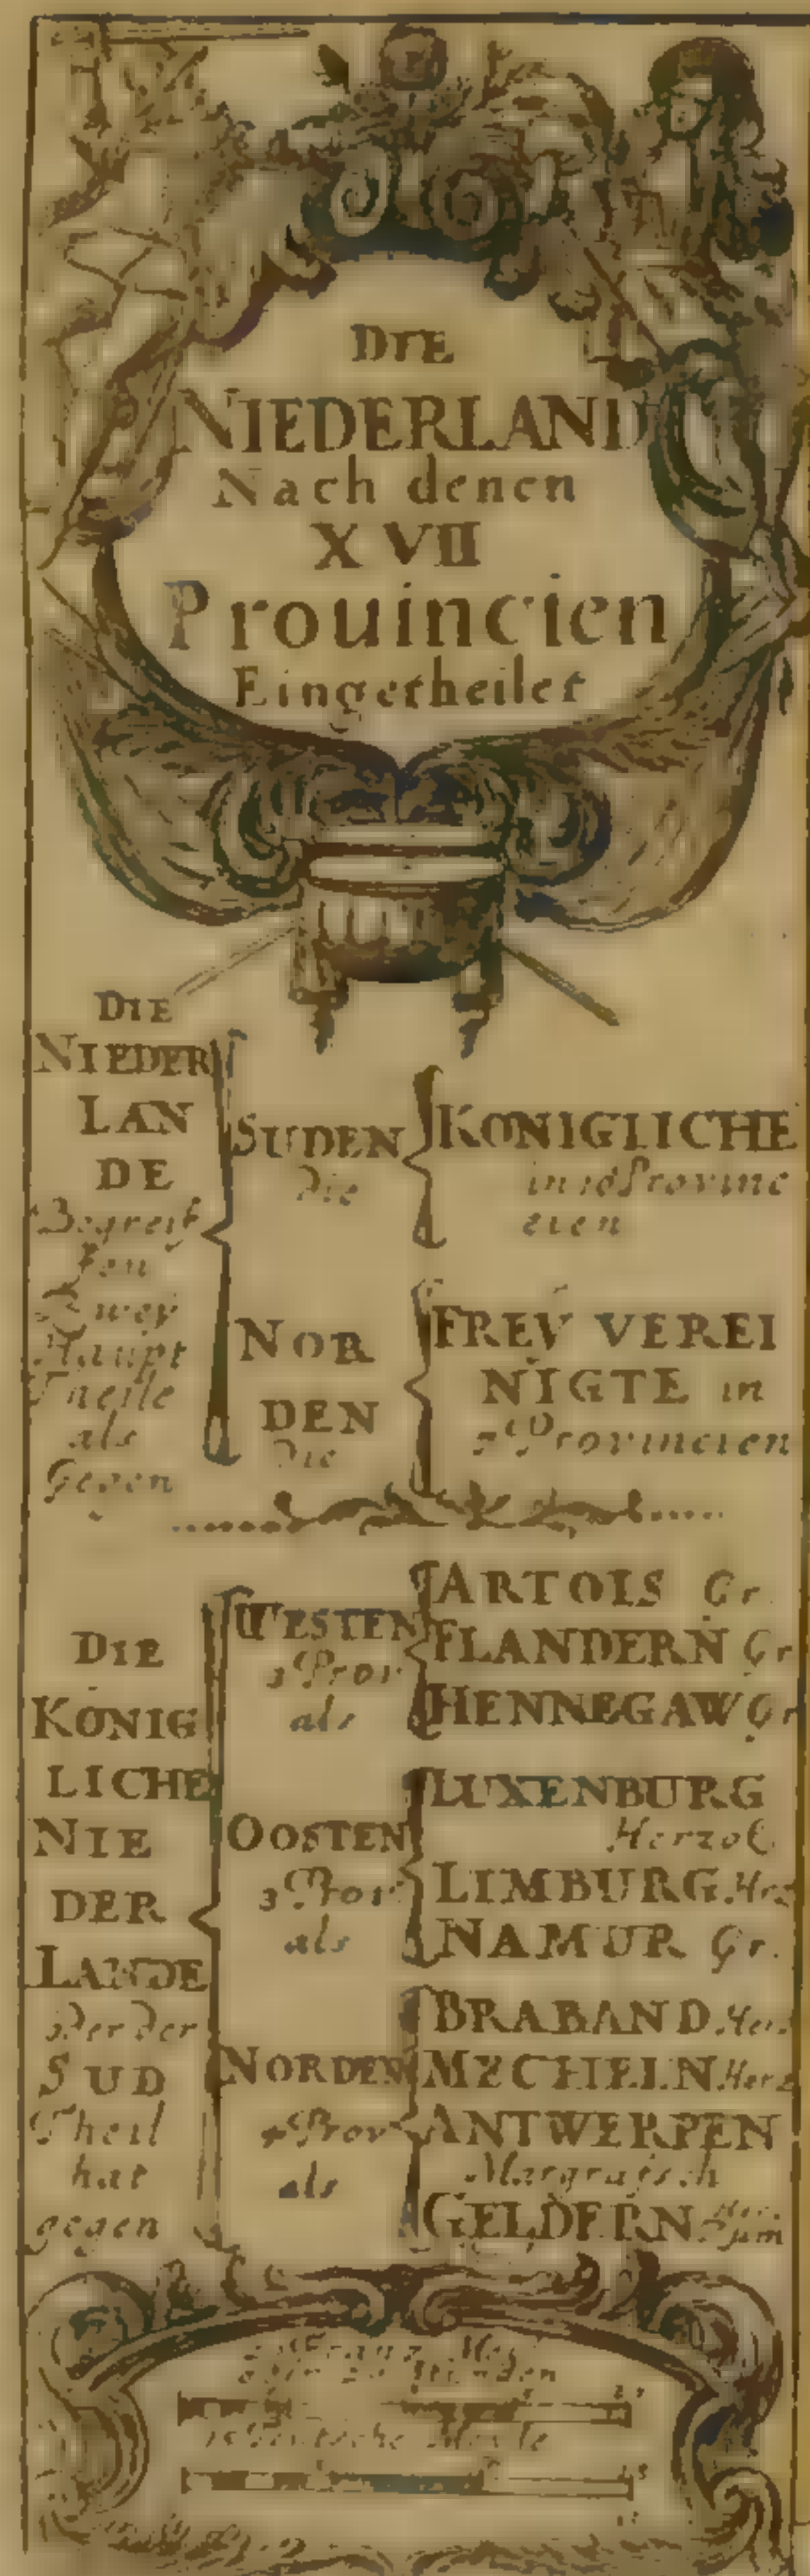 DIE
NIEDERLAND
Nach denen
XVII
Prouincien
Eingetheilet
DIE
NIEDER
LAN
DE
Begreif
fen
Zwey
Haupt
Theile
als
Gegen
SUDEN
die
KONIGLICHE
in 10 Provinc
cien
NOR
DEN
die
FREY VEREI
NIGTE in
7 Provincien
DIE
KÖNIG
LICHE
NIE
DER
LANDE
oder der
SUD
Theil
hat
gegen
WESTEN
3 Prov
als
ARTOIS Gr.
FLANDERN Gr
HENNEGAW Gr
OOSTEN
3 Prov
als
LUXENBURG
Herzog
LIMBURG. Her
NAMUR Gr.
NORDEN
4 Prov
als
BRABAND. Her.
MECHELN. Herz
ANTWERPEN
Margrafsch
GELDERN
Stunden
15 Teutsche Meile